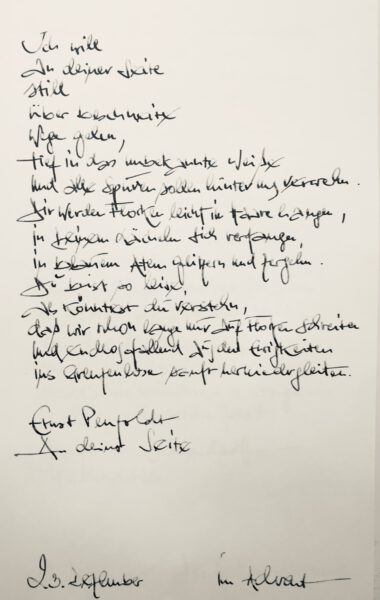 Ich will
An deiner Seite
still
über beschneite
Wege gehen,
tief in das unbekannte Weiße
und alle Spuren sollen hinter uns verwehn.
Dir werden Flocken leicht im Haare hängen,
in deinen Händen sich verfangen,
in blauem Atem glitzern und zergehn.
Du bist so leise,
als könntest du verstehn,
daß wir schon lange nur auf Flocken schreiten
und endlos fallend aus den Ewigkeiten
ins Grenzenlose sanft herniedergleiten.
Ernst Penzoldt
An deiner Seite
Dezember im Advent